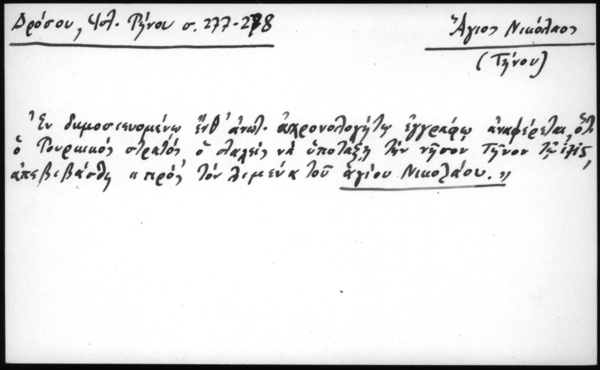 Δρόσου, Ἱστ. Τήνου σ. 277-278
Ἅγιος Νικόλαος
(Τήνου)
Ἐν δημοσιευομένῳ ἔνθ' ἀνωτ. ἀχρονολογήτῳ ἐγγράφῳ ἀναφέρεται, ὅτι
ὁ Τουρκικός στρατός ὁ σταλείς νά ὑποτάξῃ τήν νῆσον Τῆνον τῷ 1715,
ἀπεβιβάσθη "πρός τόν λιμένα τοῦ ἁγίου Νικολάου."